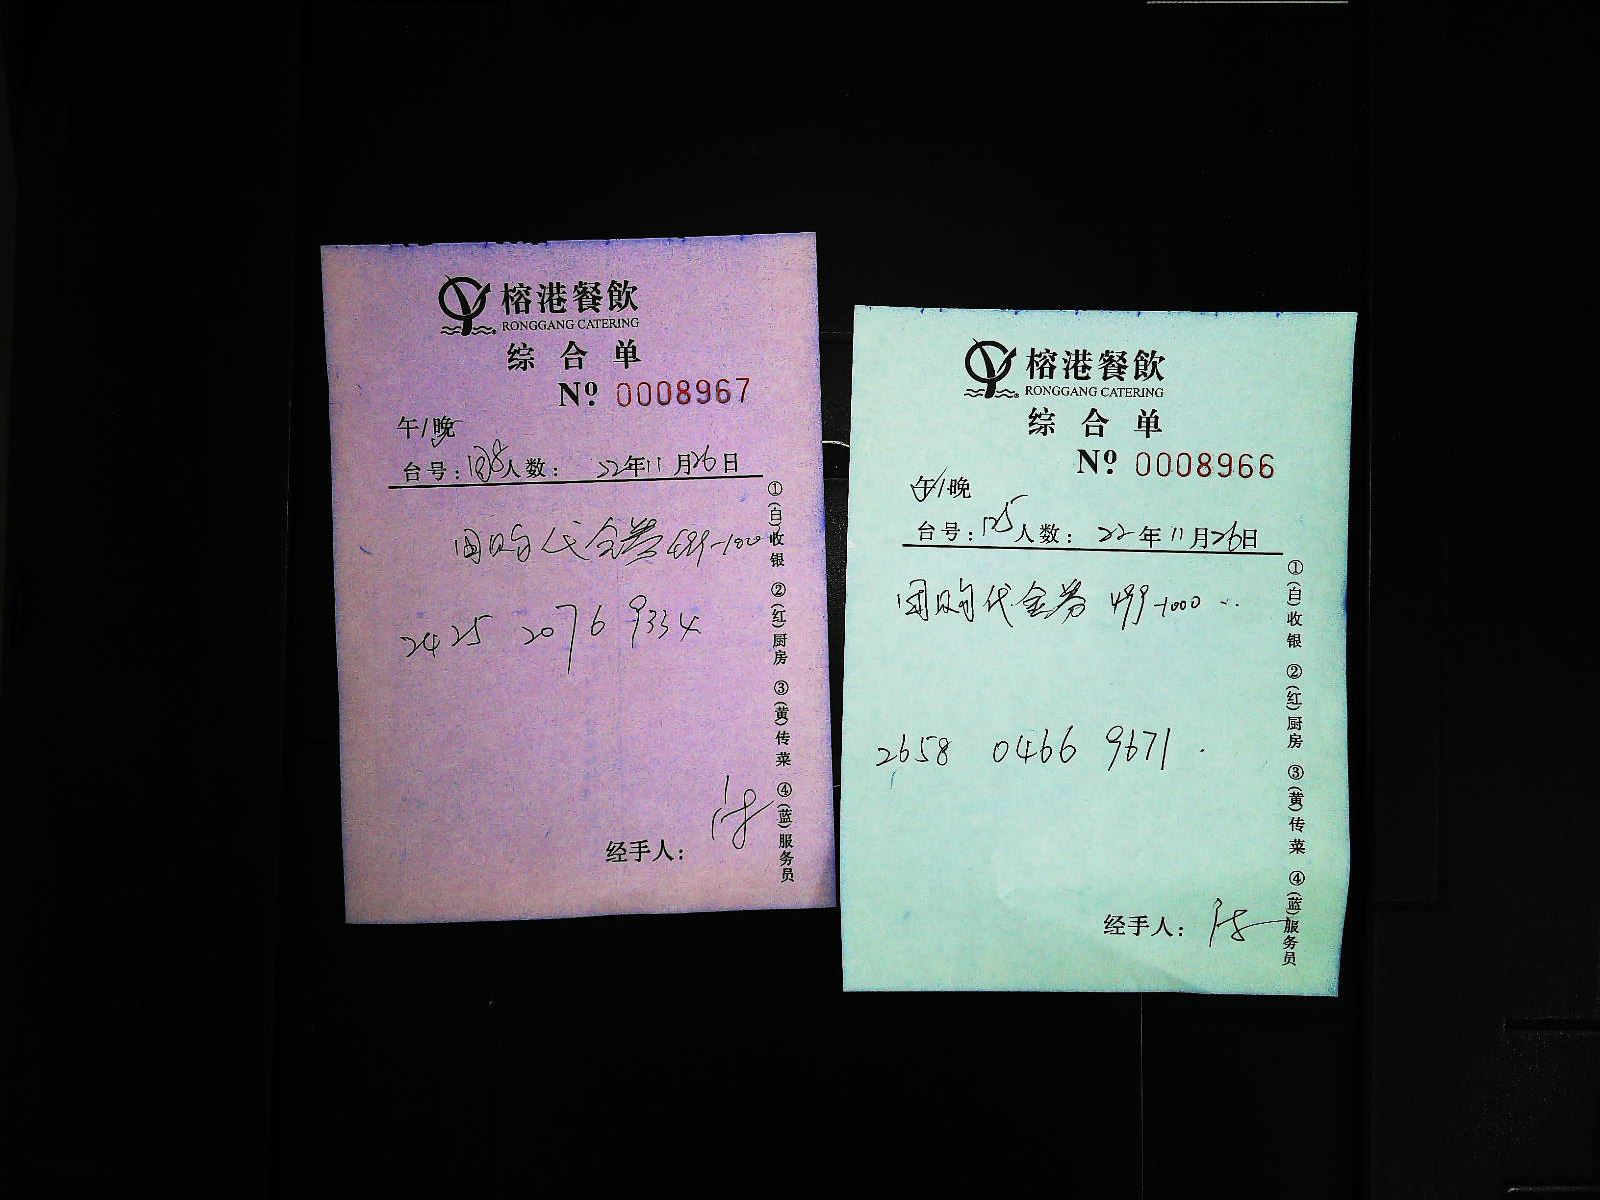 榕港餐飲
RONGGANG CATERING
综合单
Nº 0008967
午/晚
台号: 人数: 22年11月26日
团购代金券 499-1000
2425 2076 9334
经手人:
①(白)收银 ②(红)厨房 ③(黄)传菜 ④(蓝)服务员
榕港餐飲
RONGGANG CATERING
综合单
Nº 0008966
午/晚
台号: 125 人数: 22年11月26日
团购代金券 499-1000
2658 0466 9671
经手人:
①(白)收银 ②(红)厨房 ③(黄)传菜 ④(蓝)服务员